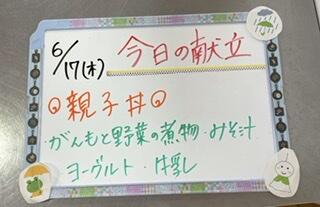 6/17(木) 今日の献立
親子丼
・がんもと野菜の煮物・みそ汁
ヨーグルト・牛乳